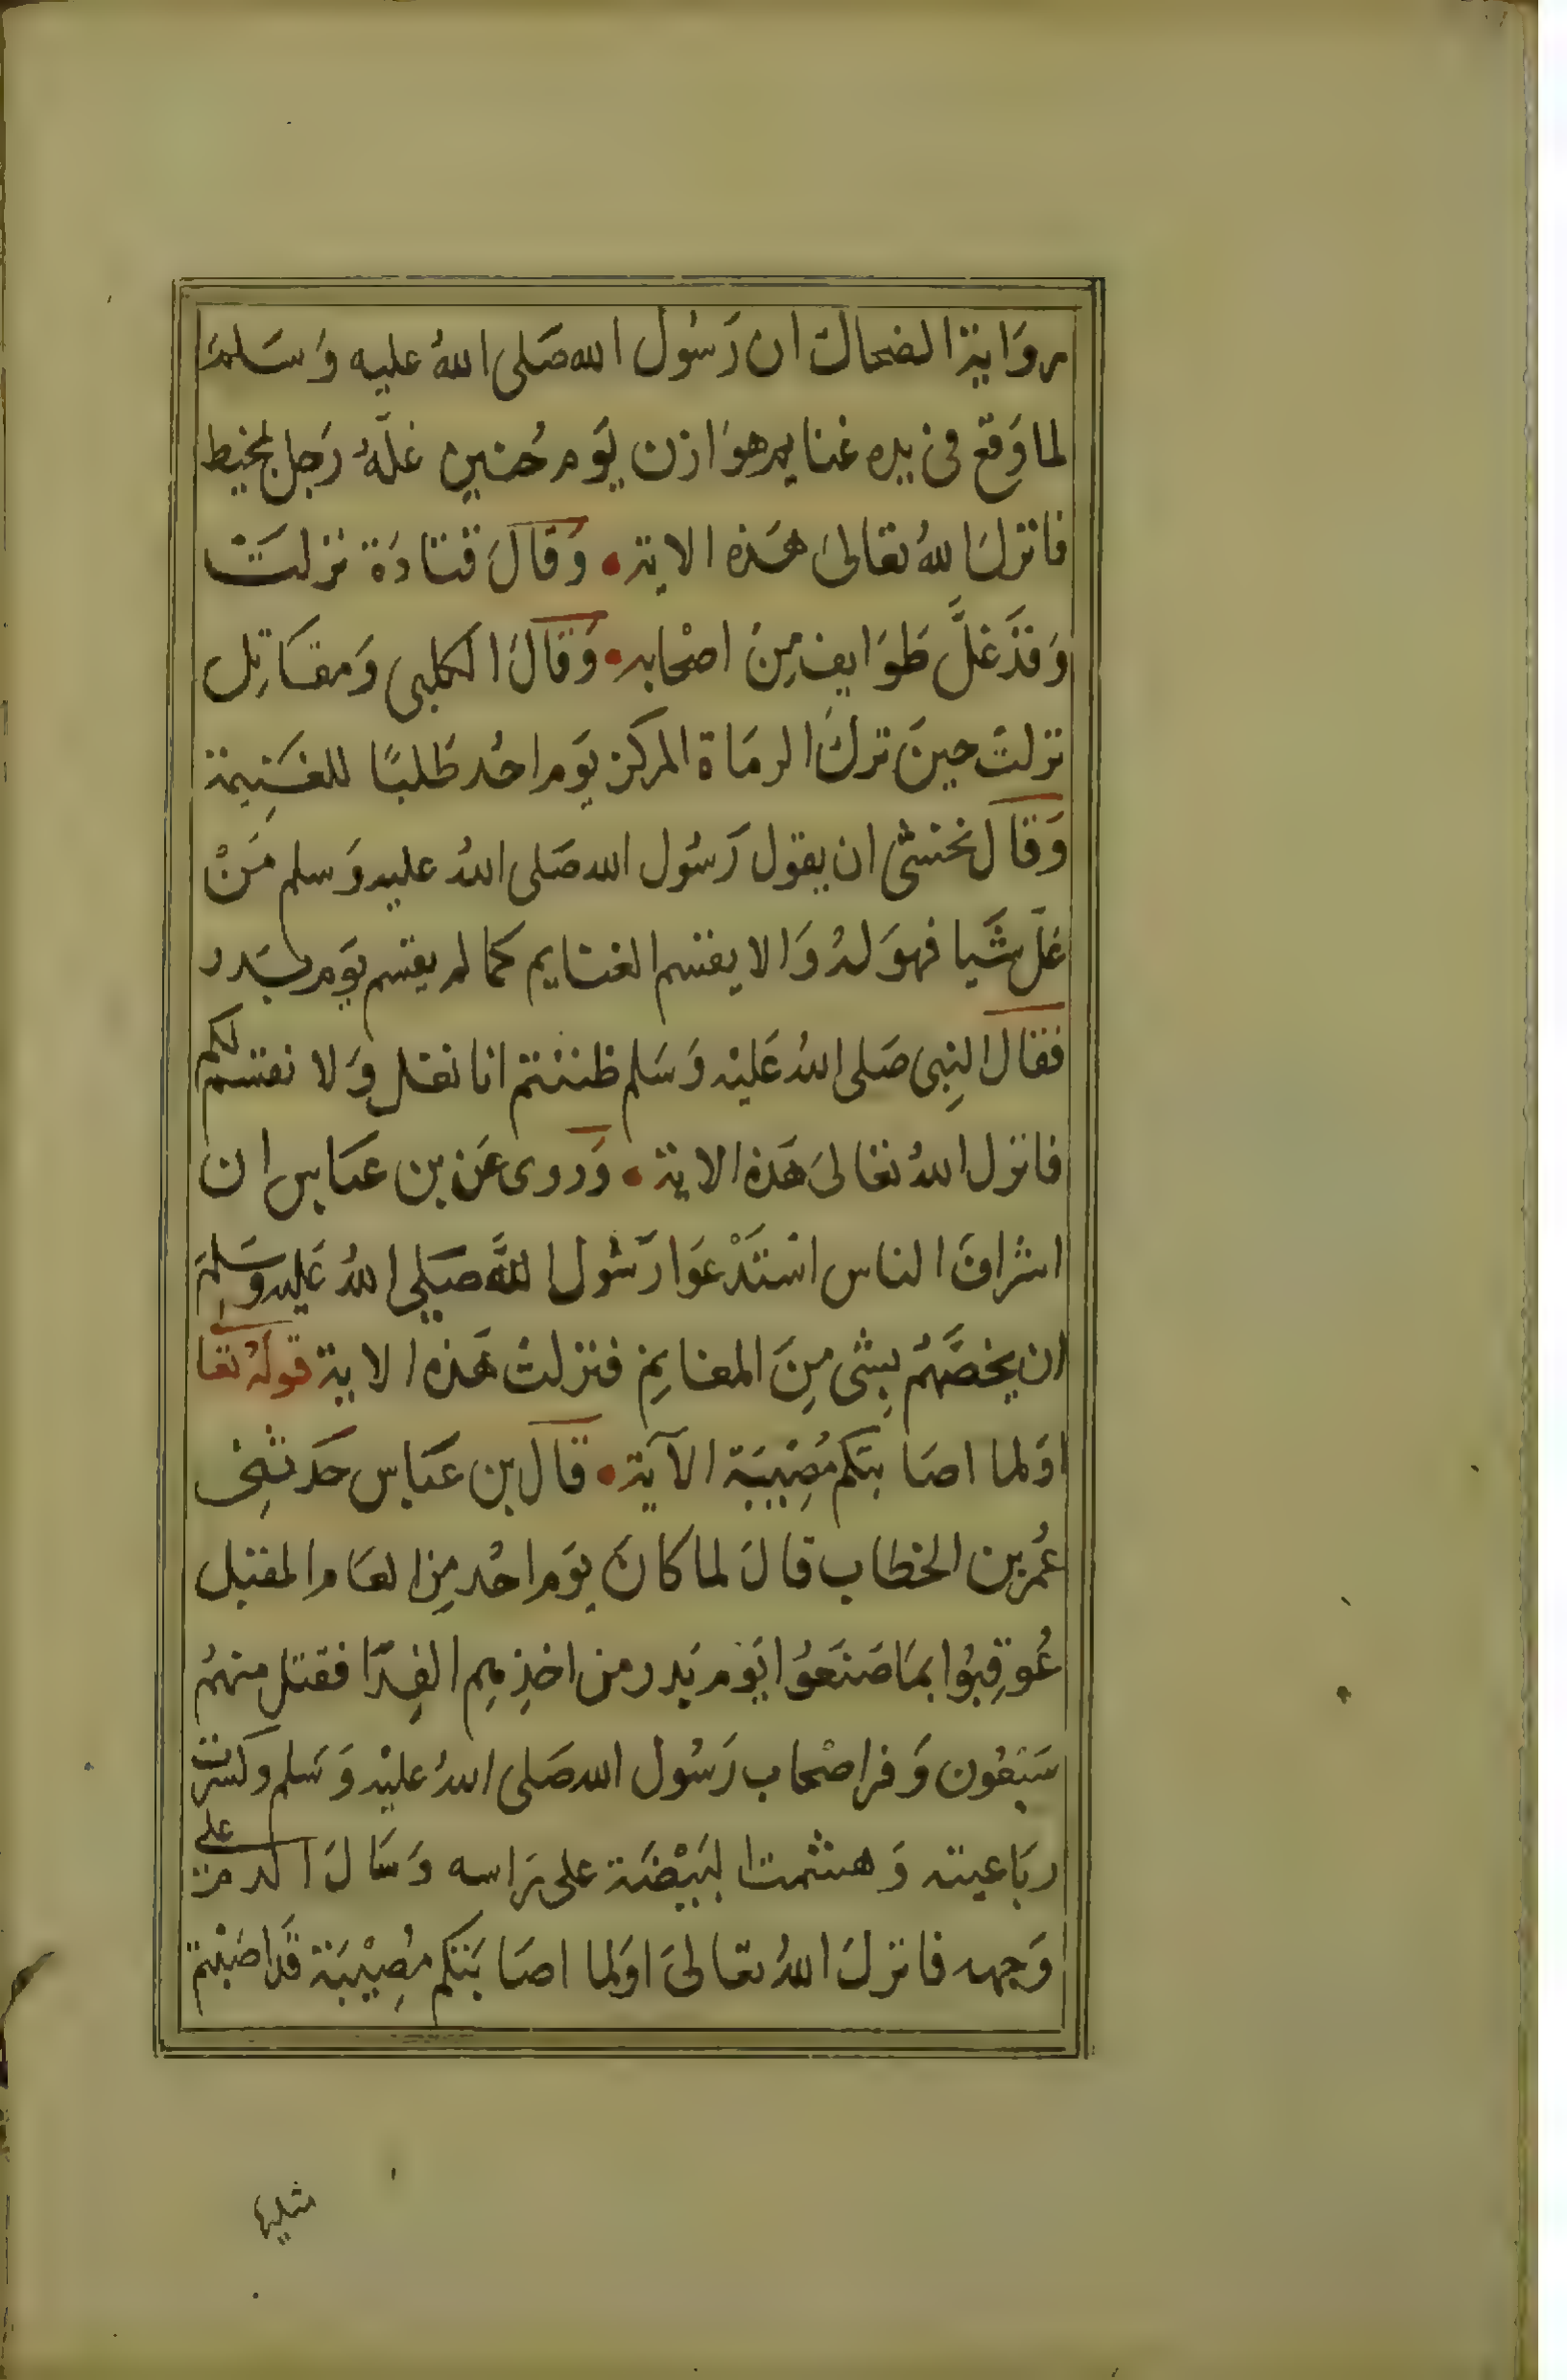 رواية الضحاك ان رَسُول الله صَلى اللهُ عليه وَسَلمَ
لما وَقع في يده غنايم هوَازن يَوم حُنين غلَّهُ رَجل بمخيط
فانزلَ اللهُ تعالىَ هَذه الاية • وَقالَ قتادَة نزلتَ
وَقدَ غلَّ طوَايف مِنَ اصْحابه • وَقالَ الكلبي وَمقاتِل
نزلتَ حينَ تركَ الرمَاة المركز يَوم احُد طَلبًا للغَنِيمة
وَقالَ نخشى ان يقول رَسُول الله صَلى اللهُ عليه وَسلم مَنْ
غلَّ شَيا فهوَ لهُ وَالا يقسم الغنايم كما لم يقسم يَوم بَدر
فقال النِبى صَلى اللهُ عَليْه وَسَلم ظننتم انا نغل وَلا نقسم لكم
فانزل اللهُ تعالىَ هَذه الاية • وَروى عَن بن عباس ان
اشرافَ الناس استَدْعَوا رَسُول اللهَّ صَلى اللهُ عَليه وسَلمَ
ان يخصَّهُم بِشى مِنَ المغانِم فنزلتَ هَذه الاية قولهُ تعالى
اوَلما اصَابتكم مُصِيبَة الآية • قال بن عَباس حَدثنِى
عُمر بن الخطاب قالَ لما كانَ يَوم احُد مِن العَام المقبل
عُوقِبُوا بمَا صَنعَوُا يَوم بَدر من اخذِهِم الفِدَا فقتل منهُم
سَبْعُون وَفر اصْحاب رَسُول الله صَلى اللهُ عليْه وَسَلم وكسرت
رَباعيته وَهشمت البَيْضَة على رَاسه وَسَالَ الدم على
وَجهه فانزلَ اللهُ تعالىَ اوَلما اصَابَتكم مُصِيْبَة قَد اصَبْتم
مثليها